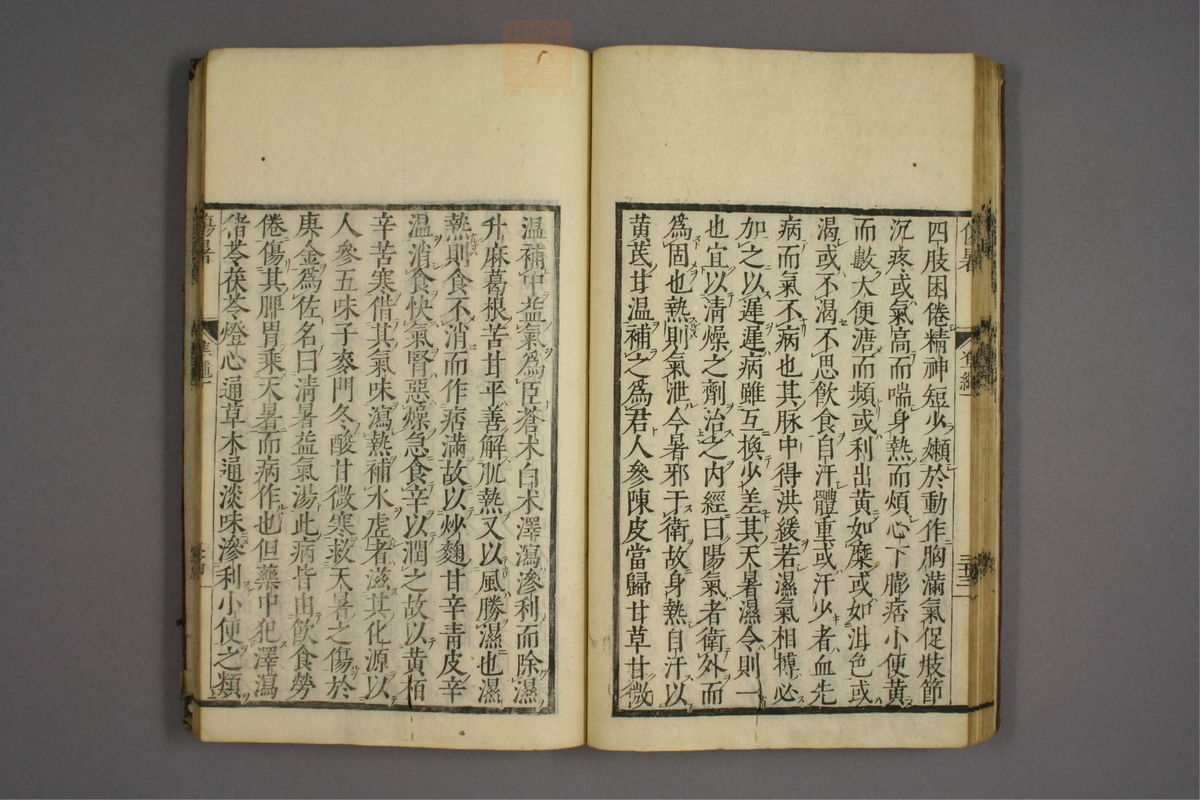 四肢困倦精神短少嬾於動作胸滿氣促肢節
沉疼或氣高而喘身熱而煩心下膨痞小便黄
而數大便溏而頻或利出黄如糜或如泔色或
渴或不渴不思飲食自汗體重或汗少者血先
病而氣不病也其脉中得洪緩若濕氣相摶必
加之以遲遲病雖互換少差其天暑濕令則一
也宜以清燥之劑治之内經曰陽氣者衛外而
爲固也熱則氣泄今暑邪干衛故身熱自汗以
黄芪甘温補之爲君人參陳皮當歸甘草甘微
温補中益氣爲臣蒼术白术澤瀉滲利而除濕
升麻葛根苦甘平善解肌熱又以風勝濕也濕
熱則食不消而作痞滿故以炒麴甘辛青皮辛
温消食快氣腎惡燥急食辛以潤之故以黄栢
辛苦寒借其氣味瀉熱補水虚者滋其化源以
人參五味子麥門冬酸甘微寒救天暑之傷於
庚金爲佐名曰清暑益氣湯此病皆由飲食勞
倦傷其脾胃乘天暑而病作也但藥中犯澤瀉
猪苓茯苓燈心通草木通淡味滲利小便之類
傷暑